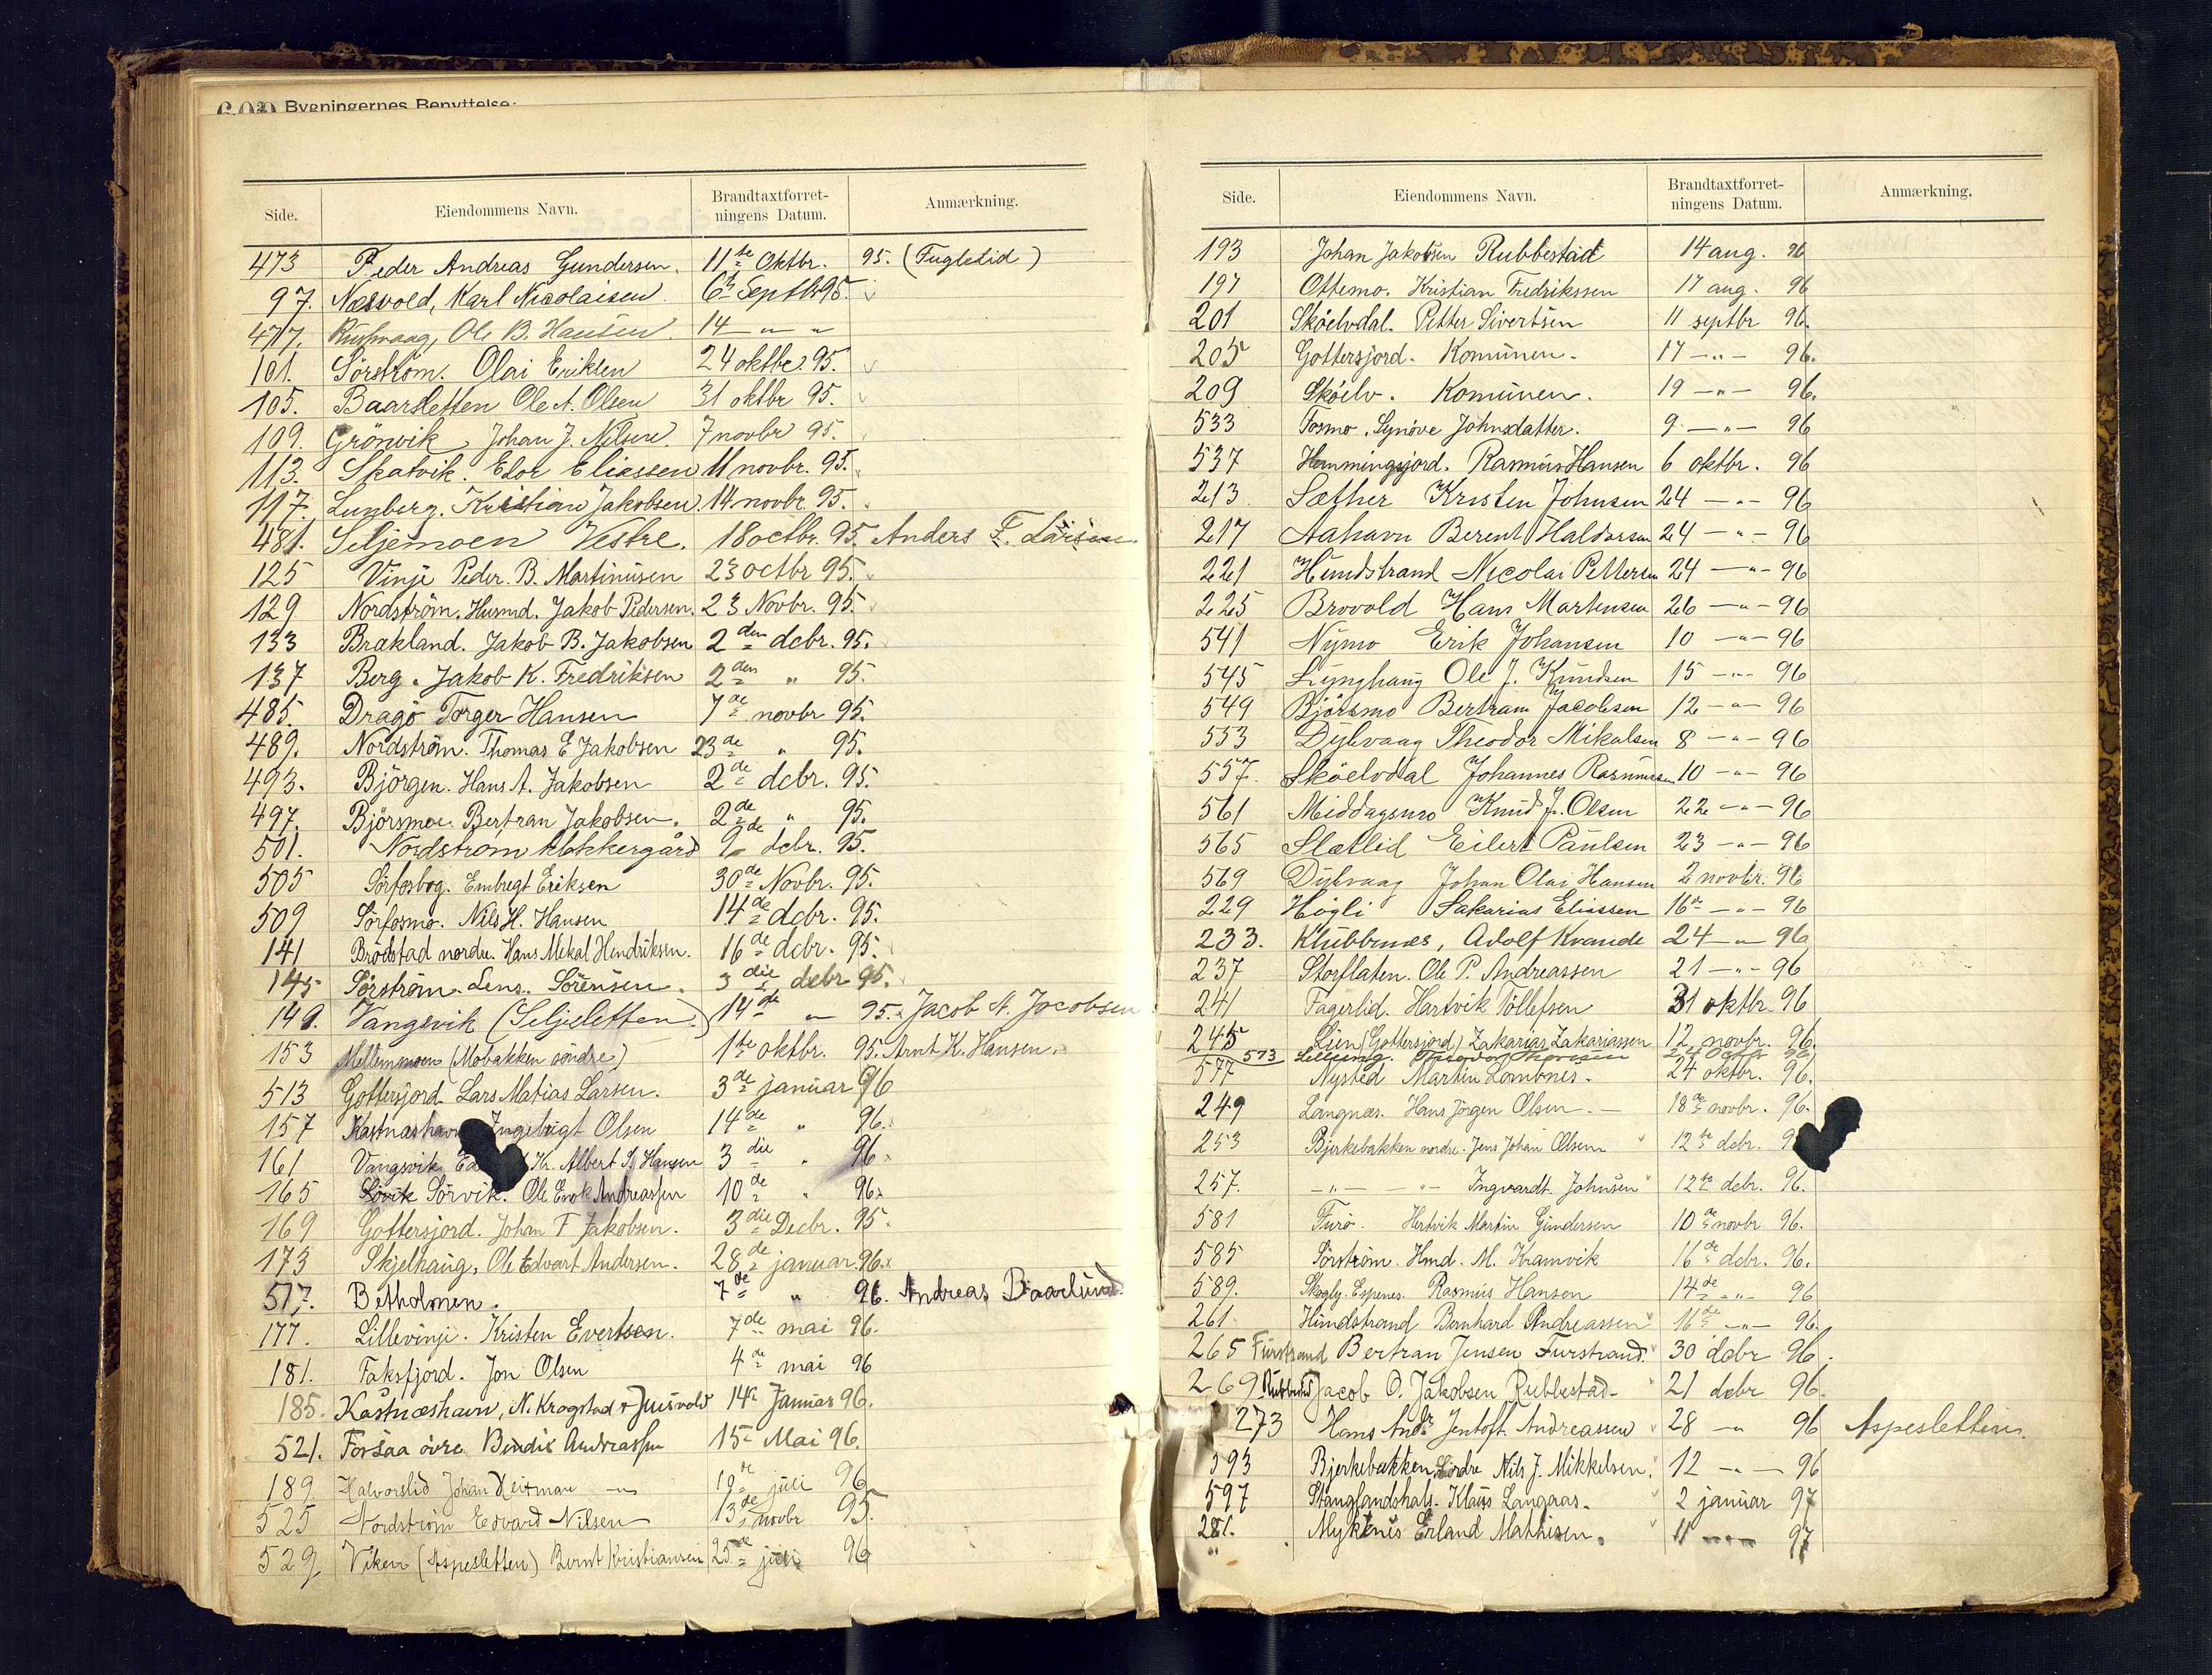 609 Bygningernes Benyttelse:
Side. Eiendommens Navn. Brandtaxtforret-
ningens Datum. Anmærkning.
473 Peder Andreas Gundersen. 11te Oktbr. 95. (Fugletid)
97. Næsvold, Karl Nicolaisen. 6te Septbr 95.
477. Ole B. Hansen. 14 — " — "
101. Sörström. Olai Eriksen 24 oktbr. 95.
105. Baarsletten Ole A. Olsen 31 oktbr 95.
109. Grönvik, Johan J. Nilsen. 7 novbr 95.
113. Skatvik. Edor Eliassen 11 novbr. 95.
117. Lunberg. Kristian Jakobsen. 14 novbr. 95.
481. Seljemoen Vestre. 18 octbr. 95. Anders F. Larsen.
125 Vinje Peder. B. Martinusen 23 octbr 95.
129 Nordström. Husmd. Jakob Pedersen. 23 Novbr. 95.
133 Brakland. Jakob B. Jakobsen 2den debr. 95.
137 Berg. Jakob K. Fredriksen 2den " 95.
485. Dragö Torger Hansen 7de novbr 95.
489. Nordström. Thomas E Jakobsen 23de " 95.
493. Björgen. Hans A. Jakobsen 2de debr. 95.
497. Björsmoe Bertran Jakobsen. 2de " 95.
501. Nordström Klokkergård 9de debr. 95.
505 Sörfosbog. Embregt Eriksen 30de Novbr. 95.
509 Sörfosmo. Nils H. Hansen 14de debr. 95.
141 Brödstad nordre. Hans Mekal Hendriksen. 16de debr. 95.
145 Sörström. Lens. Sörensen. 3die debr 95.
149. Vangsvik (Seljesletten.) 14de " 95. Jacob A. Jocobsen
153 Mellemmoen (Mobakken söndre) 1te oktbr. 95. Arnt K. Hansen.
513 Gottersjord. Lars Matias Larsen. 3de januar 96
157 Kastnæshavn Ingebrigt Olsen 14de " 96.
161 Vangsvik Kr. Albert S. Hansen 3die " 96
165 Sörvik. Ole Enok Andreassen 10de " 96.
169 Gottersjord. Johan F Jakobsen. 3die Decbr. 95.
173 Skjelhaug, Ole Edvart Andersen. 28de januar. 96.
517. Betholmen. 7de " 96. Andreas Baarlund.
177. Lillevinje. Kristen Evertsen. 7de mai 96.
181. Faksfjord. Jon Olsen 4de mai 96
185. Kastnæshavn, N. Kragstad + Juisvold 14de Januar 96.
521. Forsaa övre Bendik Andreassen 15de Mai 96.
189 Halvorslid Johan Heitman 10de juli 96
525 Nordström Edvard Nilsen 13de novbr 95.
529 Viken (Aspesletten) Bernt Kristiansen 25de juli 96
Side. Eiendommens Navn. Brandtaxtforret-
ningens Datum. Anmærkning.
193 Johan Jakobsen Rubbestad 14 aug. 96
197 Ottemo. Kristian Fredrikssen 17 aug. 96
201 Sköelvdal. Petter Sivertsen 11 septbr 96.
205 Gottersjord. Komunen. 17 — " — 96.
209 Sköelv. Komunen. 19 — " — 96.
533 Fosmo. Synöve Johnsdatter. 9. — " — 96
537 Hemmingsjord. Rasmus Hansen 6 oktbr. 96
213 Sæther Kristen Johnsen 24 — " — 96
217 Aahavn Berent Haldorsen 24 — " — 96
221 Hundstrand Nicolai Pettersen 24 — " — 96
225 Brovold Hans Martensen 26 — " — 96
541 Nymo Erik Johansen 10 — " — 96
545 Lynghaug Ole J. Knudsen 15 — " — 96
549 Björsmo Bertram Jacobsen 12 — " — 96
553 Dybvaag Theodor Mikalsen 8 — " — 96
557. Sköelvdal Johannes Rasmussen 10 — " — 96
561 Middagsmo Knud J. Olsen 22 — " — 96
565 Slætlid Eilert Paulsen 23 — " — 96
569 Dybvaag Johan Olai Hansen 2 novbr. 96
229 Högli Sakarias Eliassen 16de — " — 96
233. Klubbnæs, Adolf Kvande 24 — " — 96
237 Storflaten. Ole P. Andreassen 21 — " — 96
241 Fagerlid. Hartvik Tollefsen 31 oktbr. 96
245 Lien (Gottersjord) Zakarias Zakariassen 12 novbr. 96.
573
577 Nysted Martin Lombnes. 24 oktbr. 96.
249 Langnæs. Hans Jörgen Olsen. — 18de novbr. 96.
253 Bjerkebakken nordre. Jens Johan Olsen 12te debr.
257. — " — — " — Ingvardt. Johnsen 12te debr. 96.
581 Furö. Hertvik Martin Gundersen 10de novbr 96.
585 Sörström. Hmd. M. Kramvik 16de debr. 96.
589. Skogly. Espenes. Rasmus Hansen 14de — " — 96
261 Hundstrand Bernhard Andreassen 16de — " — 96.
265 Furstrand Bertran Jensen Furstrand. 30 debr 96.
269 Rubbestad Jacob O. Jakobsen Rubbestad 21 debr 96.
273 Hans Andr Jentoft Andreassen 28 — " 96 Aspesletten.
593 Bjerkebakken Söndre Nils J. Mikkelsen. 12 — " — 96
597 Stanglandshals. Klaus Langaas. 2 januar 97
281. Myknes Erland Mathisen. 11 — " — 97